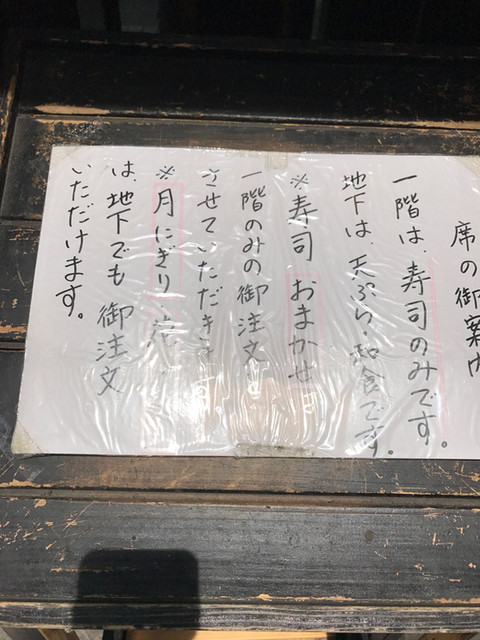 席の御案内
一階は、寿司のみです。
地下は、天ぷら、和食です。
※寿司 おまかせ
一階のみの御注文
させていただきま
※月にぎり 花
は、地下でも御注文
いただけます。